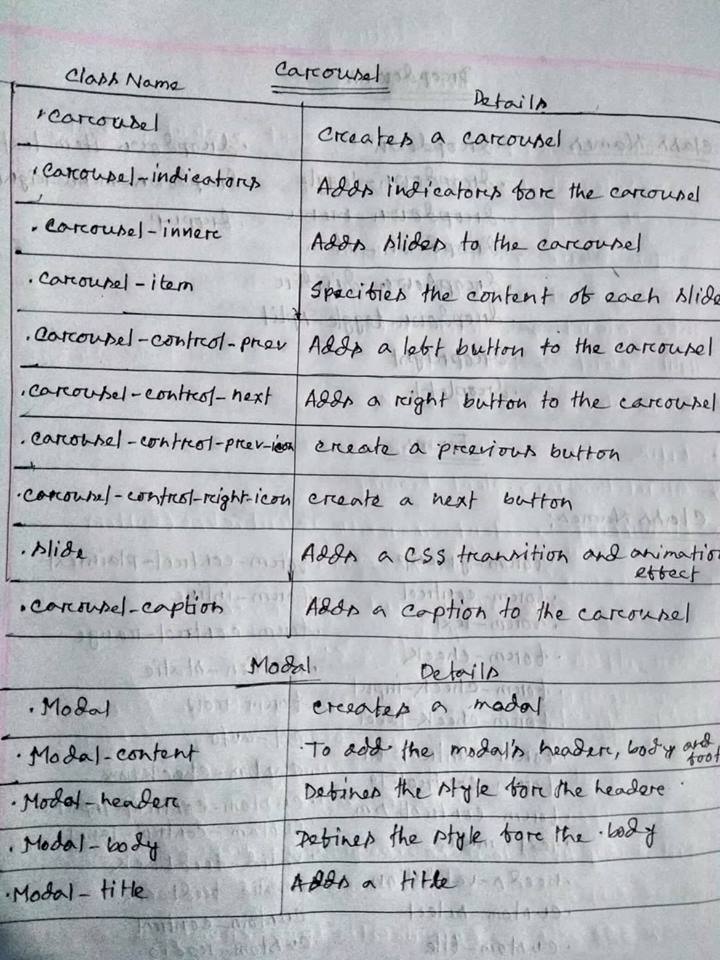 Carousel
Class Name Details
.carousel Creates a carousel
.carousel-indicators Adds indicators for the carousel
.carousel-inner Adds slides to the carousel
.carousel-item Specifies the content of each slide
.carousel-control-prev Adds a left button to the carousel
.carousel-control-next Adds a right button to the carousel
.carousel-control-prev-icon create a previous button
.carousel-control-right-icon create a next button
.slide Adds a CSS transition and animation
effect
.carousel-caption Adds a caption to the carousel
Modal Details
.Modal creates a modal
.Modal-content To add the modal's header, body and
foot
.Modal-header Defines the style for the header
.Modal-body Defines the style for the body
.Modal-title Adds a title